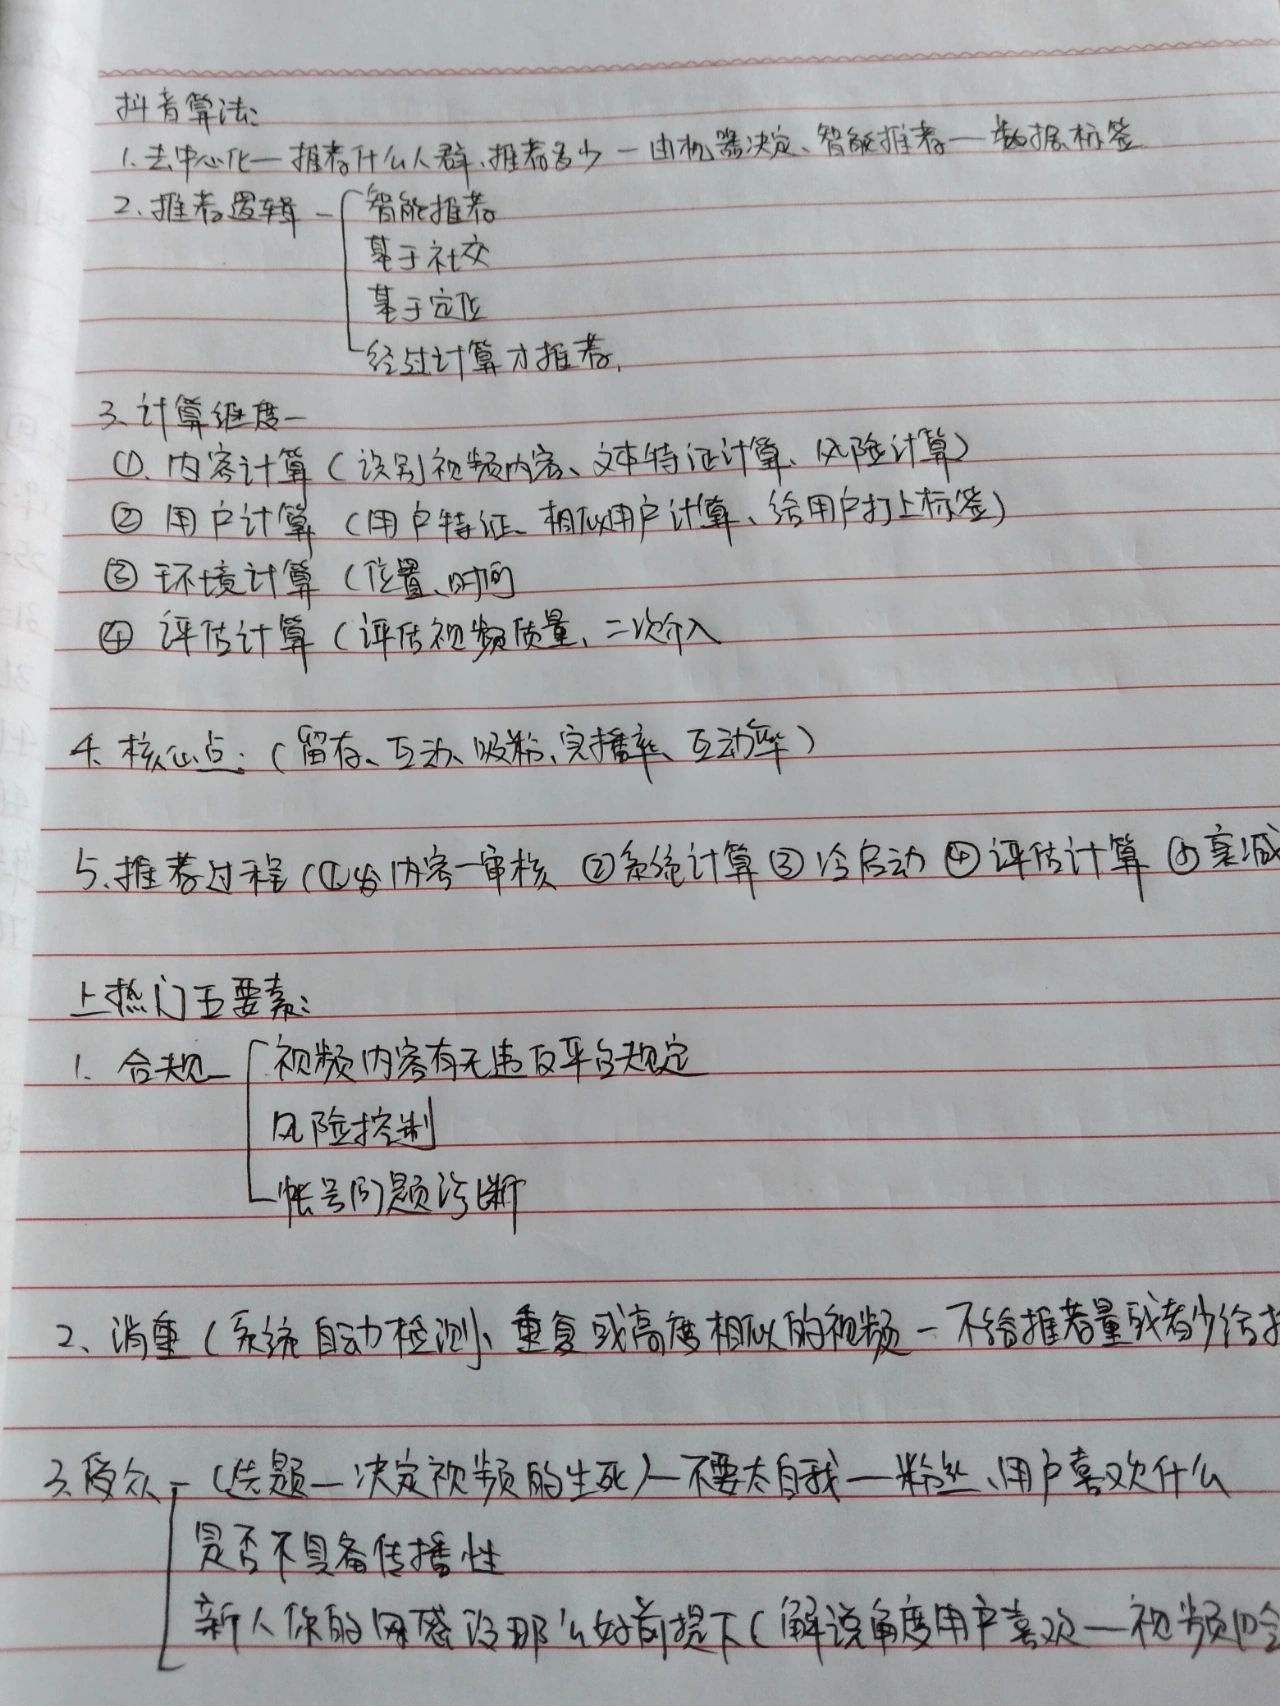 抖音算法:
1. 去中心化—推荐什么人群、推荐多少—由机器决定、智能推荐—数据标签
2. 推荐逻辑—智能推荐
基于社交
基于定位
经过计算才推荐.
3. 计算维度—
①. 内容计算(识别视频内容、文本特征计算、风险计算)
② 用户计算(用户特征、相似用户计算、给用户打上标签)
③ 环境计算(位置、时间
④ 评估计算(评估视频质量、二次介入
4. 核心点:(留存、互动、吸粉、完播率、互动率)
5. 推荐过程(①发内容—审核 ②系统计算 ③冷启动 ④评估计算 ⑤衰减
上热门五要素:
1. 合规—视频内容有无违反平台规定
风险控制
帐号问题诊断
2、消重(系统自动检测)、重复或高度相似的视频—不给推荐量或者少给推
3. 受众—(选题—决定视频的生死)—不要太自我—粉丝、用户喜欢什么
是否不具备传播性
新人你的网感没那么好前提下(解说角度用户喜欢—视频